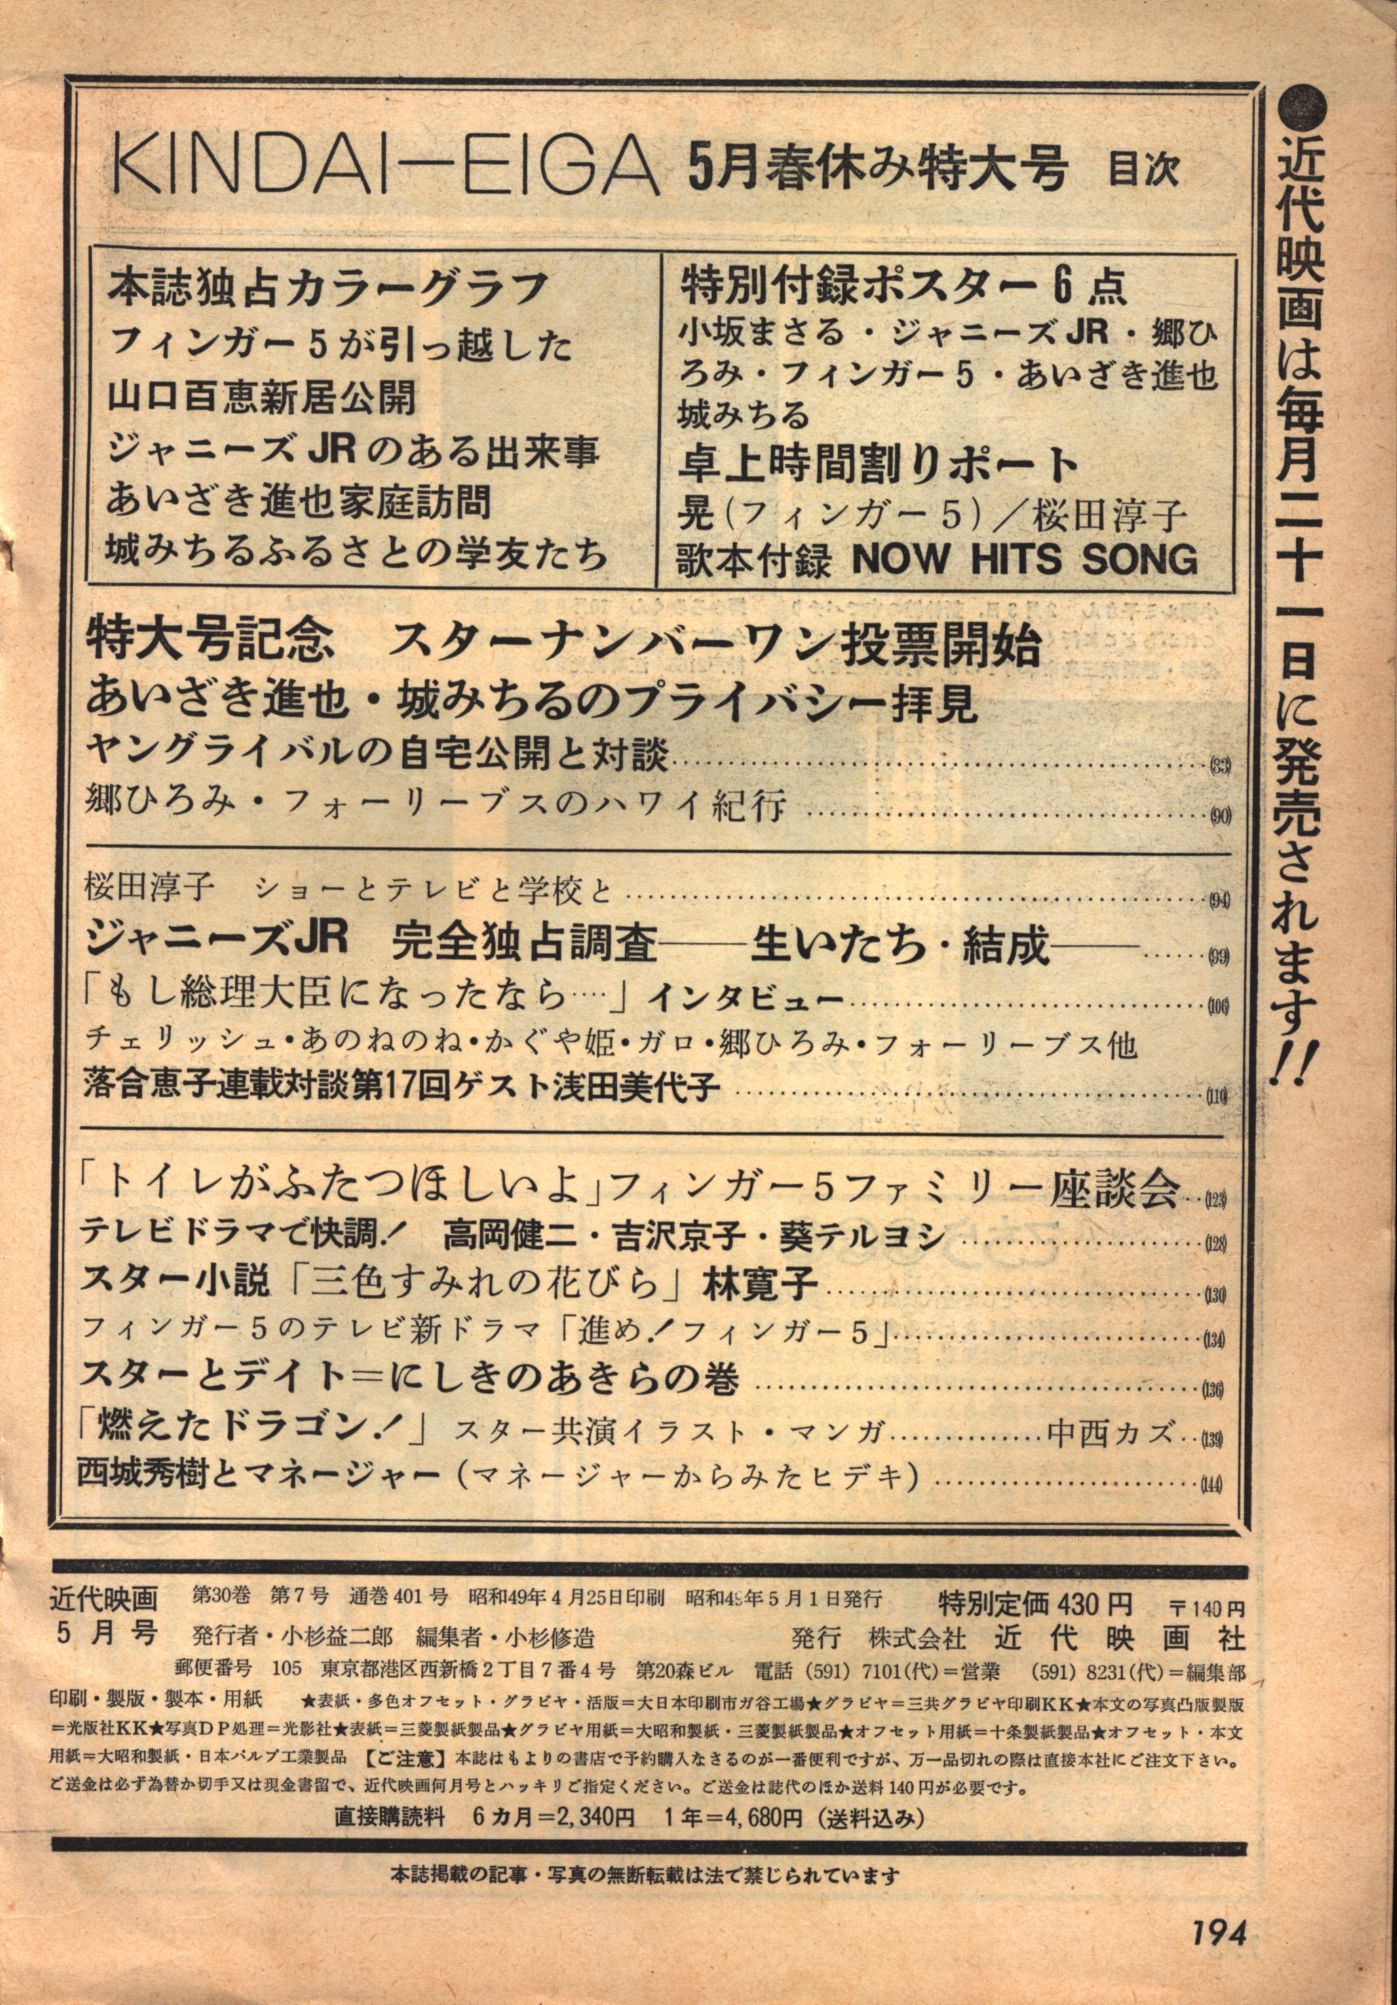 ●近代映画は毎月二十一日に発売されます!!
KINDAI—EIGA 5月春休み特大号 目次
本誌独占カラーグラフ
フィンガー5が引っ越した
山口百恵新居公開
ジャニーズJRのある出来事
あいざき進也家庭訪問
城みちるふるさとの学友たち
特別付録ポスター6点
小坂まさる・ジャニーズJR・郷ひ
ろみ・フィンガー5・あいざき進也
城みちる
卓上時間割りポート
晃(フィンガー5)／桜田淳子
歌本付録 NOW HITS SONG
特大号記念 スターナンバーワン投票開始
あいざき進也・城みちるのプライバシー拝見
ヤングライバルの自宅公開と対談……(83)
郷ひろみ・フォーリーブスのハワイ紀行……(90)
桜田淳子 ショーとテレビと学校と……(94)
ジャニーズJR 完全独占調査——生いたち・結成——……(99)
「もし総理大臣になったなら…」インタビュー……(106)
チェリッシュ・あのねのね・かぐや姫・ガロ・郷ひろみ・フォーリーブス他
落合恵子連載対談第17回ゲスト浅田美代子……(110)
「トイレがふたつほしいよ」フィンガー5ファミリー座談会…(123)
テレビドラマで快調！ 高岡健二・吉沢京子・葵テルヨシ……(128)
スター小説「三色すみれの花びら」林寛子……(130)
フィンガー5のテレビ新ドラマ「進め！フィンガー5」……(134)
スターとデイト＝にしきのあきらの巻……(136)
「燃えたドラゴン！」スター共演イラスト・マンガ……中西カズ…(139)
西城秀樹とマネージャー(マネージャーからみたヒデキ)……(144)
近代映画 第30巻 第7号 通巻401号 昭和49年4月25日印刷 昭和49年5月1日発行 特別定価430円 〒140円
5月号 発行者・小杉益二郎 編集者・小杉修造 発行 株式会社 近代映画社
郵便番号 105 東京都港区西新橋2丁目7番4号 第20森ビル 電話 (591) 7101(代)＝営業 (591) 8231(代)＝編集部
印刷・製版・製本・用紙 ★表紙・多色オフセット・グラビヤ・活版＝大日本印刷市ガ谷工場★グラビヤ＝三共グラビヤ印刷KK★本文の写真凸版製版
＝光版社KK★写真DP処理＝光影社★表紙＝三菱製紙製品★グラビヤ用紙＝大昭和製紙・三菱製紙製品★オフセット用紙＝十条製紙製品★オフセット・本文
用紙＝大昭和製紙・日本パルプ工業製品 【ご注意】本誌はもよりの書店で予約購入なさるのが一番便利ですが、万一品切れの際は直接本社にご注文下さい。
ご送金は必ず為替か切手又は現金書留で、近代映画何月号とハッキリご指定ください。ご送金は誌代のほか送料140円が必要です。
直接購読料 6カ月＝2,340円 1年＝4,680円 (送料込み)
本誌掲載の記事・写真の無断転載は法で禁じられています
194